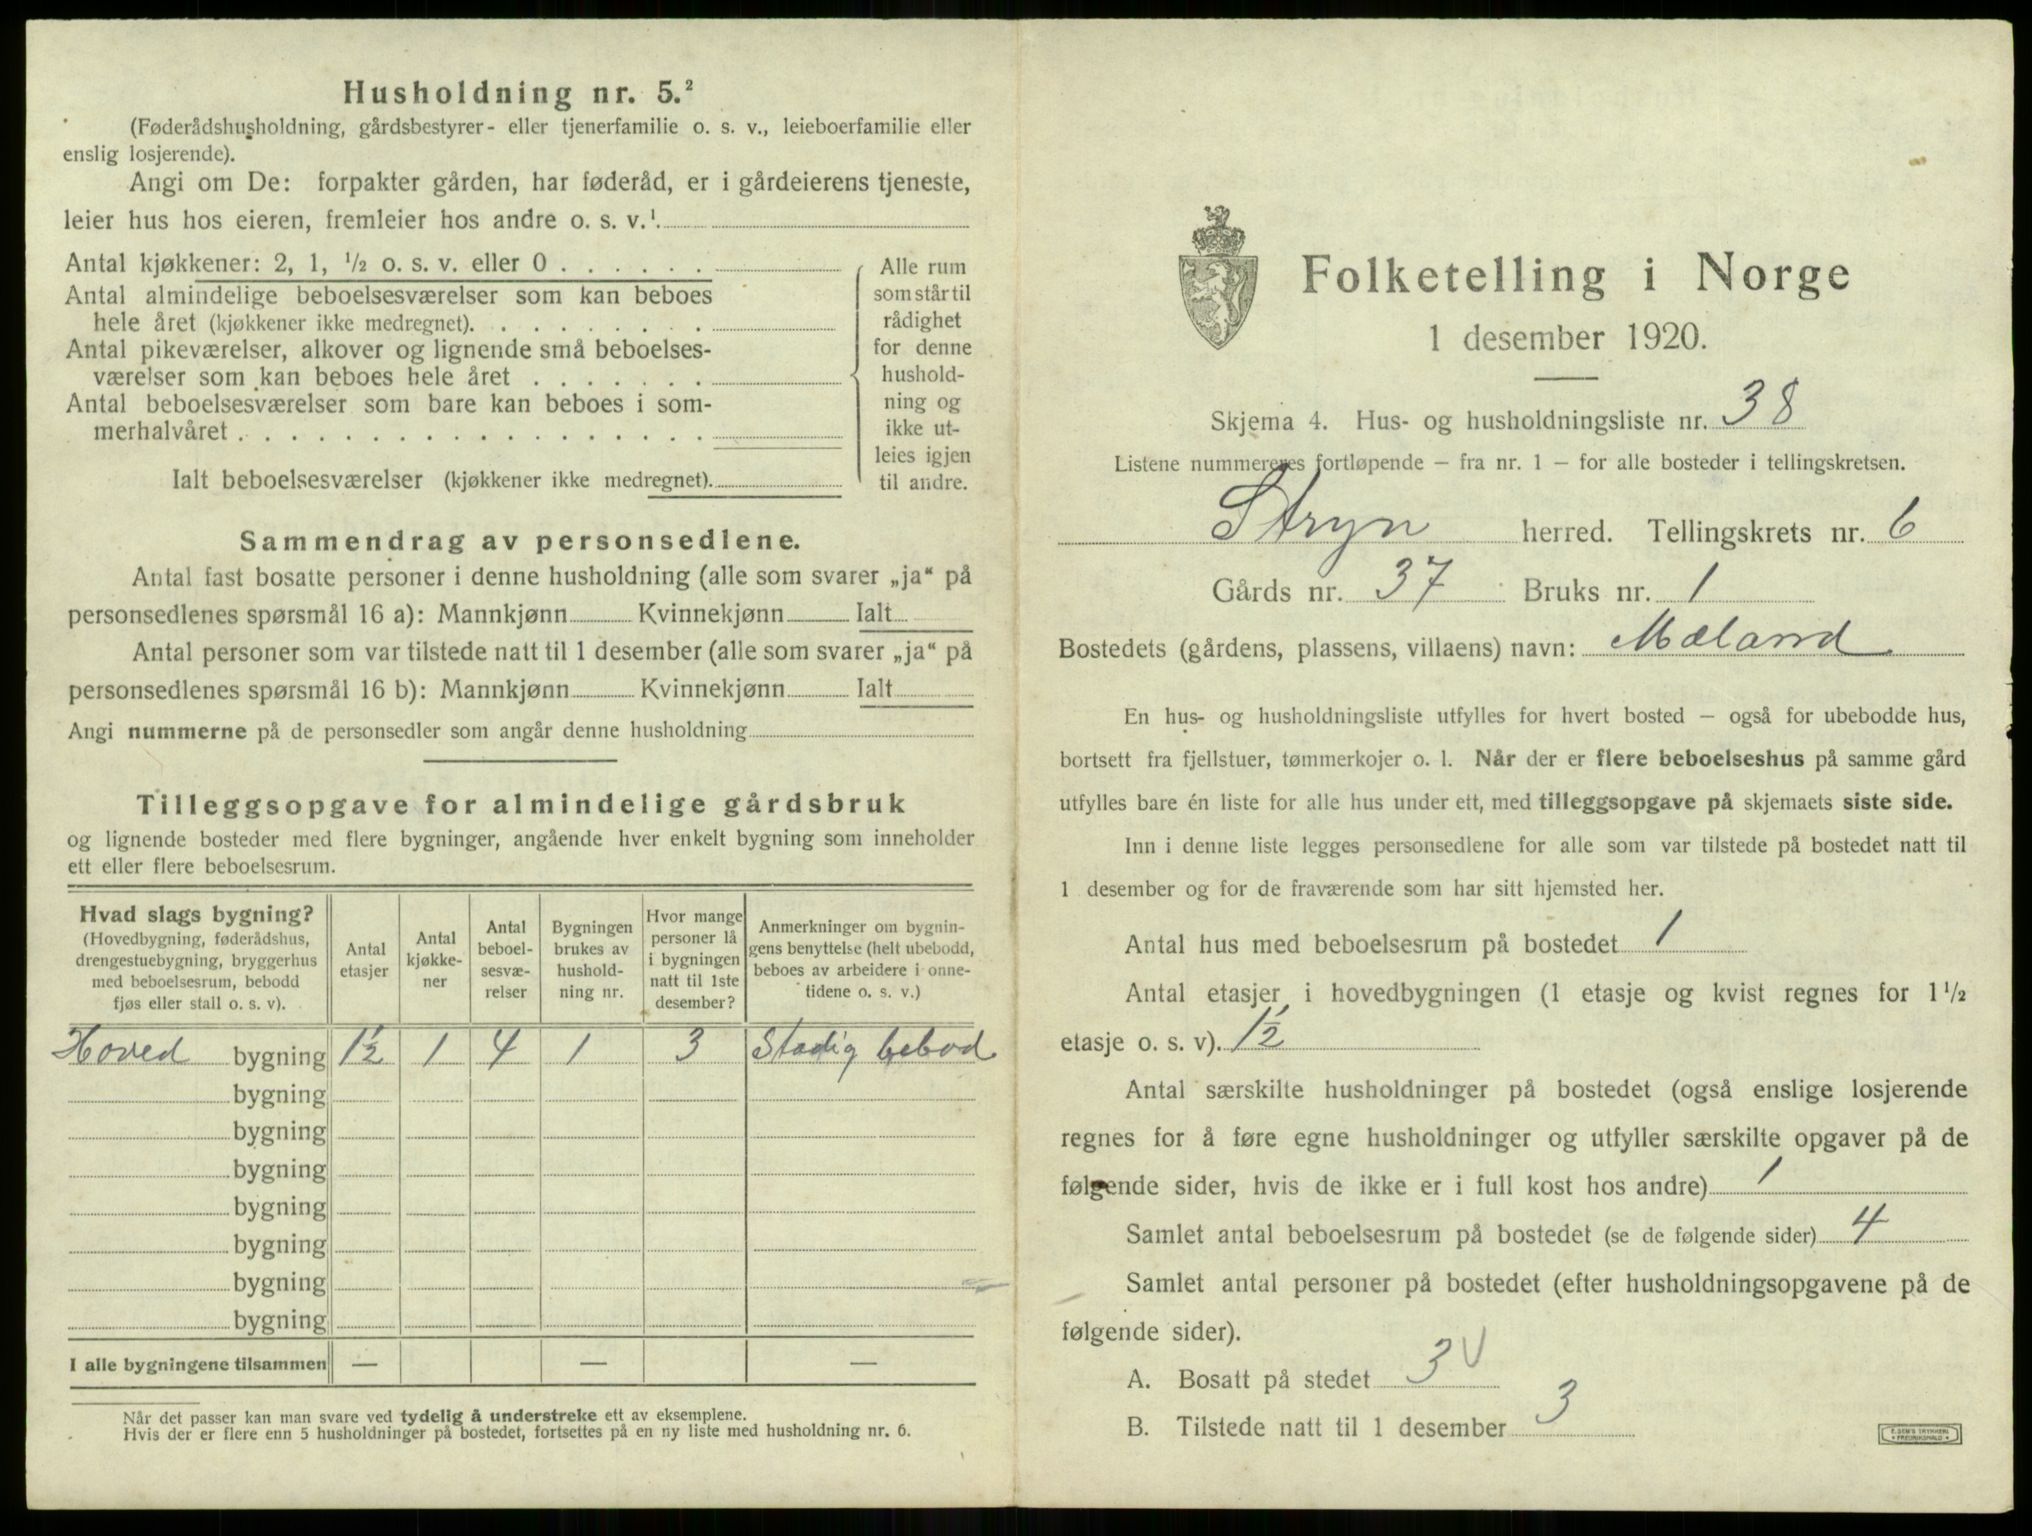 Husholdning nr. 5.²
(Føderådshusholdning, gårdsbestyrer- eller tjenerfamilie o. s. v., leieboerfamilie eller
enslig losjerende).
Angi om De: forpakter gården, har føderåd, er i gårdeierens tjeneste,
leier hus hos eieren, fremleier hos andre o. s. v.¹.
Antal kjøkkener: 2, 1, ½ o. s. v. eller 0 . . . . . .
Antal almindelige beboelsesværelser som kan beboes
hele året (kjøkkener ikke medregnet). . . . . . . . .
Antal pikeværelser, alkover og lignende små beboelses-
værelser som kan beboes hele året . . . . . . .
Antal beboelsesværelser som bare kan beboes i som-
merhalvåret . . . . . . . . . . . . . . . . . .
Ialt beboelsesværelser (kjøkkener ikke medregnet).
Alle rum
som står til
rådighet
for denne
hushold-
ning og
ikke ut-
leies igjen
til andre.
Sammendrag av personsedlene.
Antal fast bosatte personer i denne husholdning (alle som svarer „ja“ på
personsedlenes spørsmål 16 a): Mannkjønn Kvinnekjønn Ialt
Antal personer som var tilstede natt til 1 desember (alle som svarer „ja“ på
personsedlenes spørsmål 16 b): Mannkjønn Kvinnekjønn Ialt
Angi nummerne på de personsedler som angår denne husholdning
Tilleggsopgave for almindelige gårdsbruk
og lignende bosteder med flere bygninger, angående hver enkelt bygning som inneholder
ett eller flere beboelsesrum.
Hvad slags bygning?
(Hovedbygning, føderådshus,
drengestuebygning, bryggerhus
med beboelsesrum, bebodd
fjøs eller stall o. s. v).
Antal
etasjer
Antal
kjøkke-
ner
Antal
beboel-
sesvæ-
relser
Bygningen
brukes av
hushold-
ning nr.
Hvor mange
personer lå
i bygningen
natt til 1ste
desember?
Anmerkninger om bygnin-
gens benyttelse (helt ubebodd,
beboes av arbeidere i onne-
tidene o. s. v.)
Hoved bygning 1½ 1 4 1 3 Stadig bebod
bygning
bygning
bygning
bygning
bygning
bygning
bygning
I alle bygningene tilsammen — — —
Når det passer kan man svare ved tydelig å understreke ett av eksemplene.
Hvis der er flere enn 5 husholdninger på bostedet, fortsettes på en ny liste med husholdning nr. 6.
Folketelling i Norge
1 desember 1920.
Skjema 4. Hus- og husholdningsliste nr. 38
Listene nummereres fortløpende – fra nr. 1 – for alle bosteder i tellingskretsen.
Stryn herred. Tellingskrets nr. 6
Gårds nr. 37 Bruks nr. 1
Bostedets (gårdens, plassens, villaens) navn: Mæland
En hus- og husholdningsliste utfylles for hvert bosted – også for ubebodde hus,
bortsett fra fjellstuer, tømmerkojer o. l. Når der er flere beboelseshus på samme gård
utfylles bare én liste for alle hus under ett, med tilleggsopgave på skjemaets siste side.
Inn i denne liste legges personsedlene for alle som var tilstede på bostedet natt til
1 desember og for de fraværende som har sitt hjemsted her.
Antal hus med beboelsesrum på bostedet 1
Antal etasjer i hovedbygningen (1 etasje og kvist regnes for 1 ½
etasje o. s. v). 1½
Antal særskilte husholdninger på bostedet (også enslige losjerende
regnes for å føre egne husholdninger og utfyller særskilte opgaver på de
følgende sider, hvis de ikke er i full kost hos andre) 1
Samlet antal beboelsesrum på bostedet (se de følgende sider) 4
Samlet antal personer på bostedet (efter husholdningsopgavene på de
følgende sider).
A. Bosatt på stedet 3 V
B. Tilstede natt til 1 desember 3
E. SEM'S TRYKKERI
• FREDRIKSHALD •